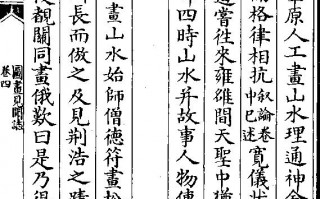 原人工畫山水理通神
格律相抗敘論卷中已述寬儀狀
遊嘗往來雍雒間天聖中猶
四時山水并故事人物傳
畫山水始師僧德符畫松
長而倣之及見荊浩之蹟
覩關同畫俄歎曰是乃得
圖畫見聞誌
卷四